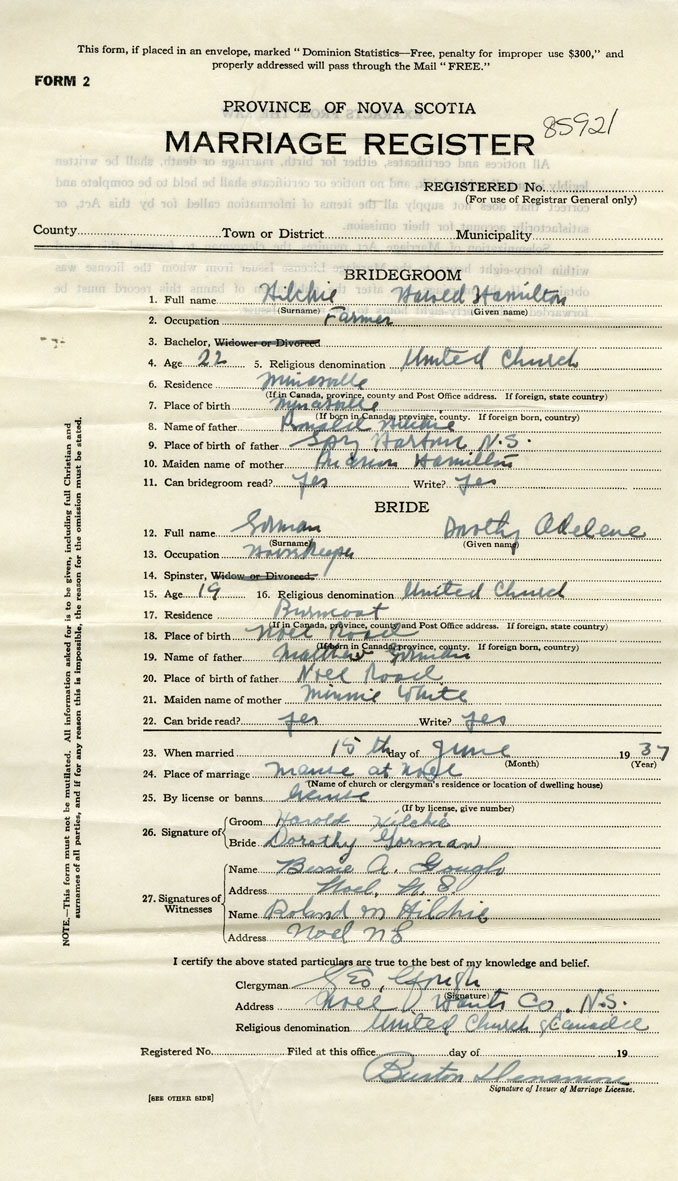 This form, if placed in an envelope, marked "Dominion Statistics—Free, penalty for improper use $300," and
properly addressed will pass through the Mail "FREE."
FORM 2
PROVINCE OF NOVA SCOTIA
85921
MARRIAGE REGISTER
REGISTERED No.
(For use of Registrar General only)
County Town or District Municipality
BRIDEGROOM
1. Full name Hilchie Harold Hamilton
(Surname) (Given name)
2. Occupation Farmer
3. Bachelor, Widower or Divorced
4. Age 22 5. Religious denomination United Church
6. Residence Minasville
(If in Canada, province, county and Post Office address. If foreign, state country)
7. Place of birth Minasville
(If born in Canada, province, county. If foreign, born, country)
8. Name of father Ronald Hilchie
9. Place of birth of father Spry Harbour N.S.
10. Maiden name of mother Hamilton
11. Can bridegroom read? yes Write? yes
BRIDE
12. Full name Gorman Dorothy Adelene
(Surname) (Given name)
13. Occupation Housekeeper
14. Spinster, Widow or Divorced
15. Age 19 16. Religious denomination United Church
17. Residence Burncoat
(If in Canada, province, county and Post Office address. If foreign, state country)
18. Place of birth Noel Road
(If born in Canada, province, county. If foreign born, country)
19. Name of father Matthew Gorman
20. Place of birth of father Noel Road
21. Maiden name of mother Minnie White
22. Can bride read? yes Write? yes
23. When married 15th day of June 1937
(Month) (Year)
24. Place of marriage Manse at Noel
(Name of church or clergyman's residence or location of dwelling house)
25. By license or banns license
(If by license, give number)
26. Signature of Groom Harold Hilchie
Bride Dorothy Gorman
27. Signatures of Witnesses
Name Bessie A. Gough
Address Noel, N.S.
Name Roland M Hilchie
Address Noel NS
I certify the above stated particulars are true to the best of my knowledge and belief.
Clergyman Geo. Gough
(Signature)
Address Noel Hants Co. N.S.
Religious denomination United Church of Canada
Registered No. Filed at this office day of 19
Burton Densmore
Signature of Issuer of Marriage License.
[SEE OTHER SIDE]
NOTE.—This form must not be mutilated. All information asked for is to be given, including full Christian and
surnames of all parties, and if for any reason this is impossible, the reason for the omission must be stated.